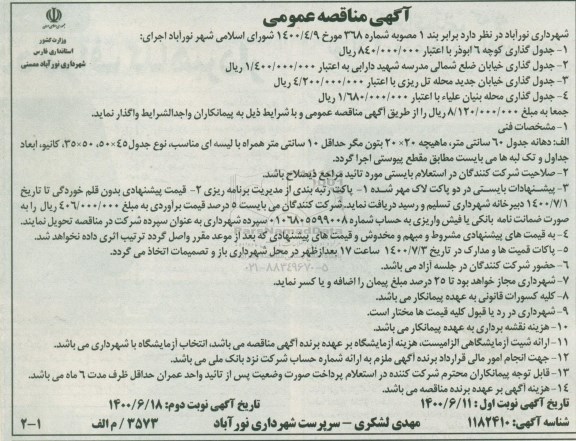 آگهی مناقصه عمومی
وزارت کشور
استانداری فارس
شهرداری نورآباد ممسنی
شهرداری نورآباد در نظر دارد برابر بند ۱ مصوبه شماره ۳۶۸ مورخ ۱۴۰۰/۴/۹ شورای اسلامی شهر نورآباد اجرای:
۱- جدول گذاری کوچه ۶ ابوذر با اعتبار ۸۴۰/۰۰۰/۰۰۰ ریال
۲- جدول گذاری خیابان ضلع شمالی مدرسه شهید دارابی به اعتبار ۱/۴۰۰/۰۰۰/۰۰۰ ریال
۳- جدول گذاری خیابان جدید محله تل ریزی با اعتبار ۴/۲۰۰/۰۰۰/۰۰۰ ریال
۴- جدول گذاری محله بنیان علیاء با اعتبار ۱/۶۸۰/۰۰۰/۰۰۰ ریال
جمعا به مبلغ ۸/۱۲۰/۰۰۰/۰۰۰ ریال را از طریق آگهی مناقصه عمومی و با شرایط ذیل به پیمانکاران واجدالشرایط واگذار نماید.
۱- مشخصات فنی
الف: دهانه جدول ۶۰ سانتی متر، ماهیچه ۲۰×۲۰ بتون مگر حداقل ۱۰ سانتی متر همراه با لیسه ای مناسب، نوع جدول۴۵×۵۰، ۵۰×۳۵، کانیو، ابعاد
جداول و تک لبه ها می بایست مطابق مقطع پیوستی اجرا گردد.
۲- صلاحیت شرکت کنندگان در استعلام بایستی مورد تائید مراجع ذیصلاح باشد.
۳- پیشنهادات بایستی در دو پاکت لاک مهر شده ۱- پاکت رتبه بندی از مدیریت برنامه ریزی ۲- قیمت پیشنهادی بدون قلم خوردگی تا تاریخ
۱۴۰۰/۷/۱ دبیرخانه شهرداری تسلیم و رسید دریافت نماید. شرکت کنندگان می بایست ۵ درصد قیمت برآوردی به مبلغ ۴۰۶/۰۰۰/۰۰۰ ریال را به
صورت ضمانت نامه بانکی یا فیش واریزی به حساب شماره ۰۱۰۶۸۰۵۵۹۹۰۰۸ سپرده شهرداری به عنوان سپرده شرکت در مناقصه تحویل نمایند.
۴- به قیمت های پیشنهادی مشروط و مبهم و مخدوش و قیمت های پیشنهادی که بعد از موعد مقرر واصل گردد ترتیب اثری داده نخواهد شد.
۵- پاکات قمیت ها و مدارک در تاریخ ۱۴۰۰/۷/۳ ساعت ۱۷ بعدازظهر در محل شهرداری باز و تصمیمات اتخاذ می گردد.
۶- حضور شرکت کنندگان در جلسه آزاد می باشد.
۷- شهرداری مجاز خواهد بود تا ۲۵ درصد مبلغ پیمان را اضافه و یا کسر نماید.
۸- کلیه کسورات قانونی به عهده پیمانکار می باشد.
۹- شهرداری در رد یا قبول کلیه قیمت ها مختار است.
۱۰- هزینه نقشه برداری به عهده پیمانکار می باشد.
۱۱- ارائه شیت آزمایشگاهی الزامیست، هزینه آزمایشگاه بر عهده برنده آگهی مناقصه می باشد، انتخاب آزمایشگاه با شهرداری می باشد.
۱۲- جهت انجام امور مالی قرارداد برنده آگهی ملزم به ارائه شماره حساب شرکت نزد بانک ملی می باشد.
۱۳- قابل توجه پیمانکاران محترم شرکت کننده در استعلام پرداخت صورت وضعیت پس از تائید واحد عمران حداقل ظرف مدت ۶ ماه می باشد.
۱۴- هزینه آگهی بر عهده برنده مناقصه می باشد.
تاریخ آگهی نوبت اول: ۱۴۰۰/۶/۱۱ تاریخ آگهی نوبت دوم: ۱۴۰۰/۶/۱۸
شناسه آگهی: ۱۱۸۲۴۱۰ مهدی لشکری - سرپرست شهرداری نورآباد ۳۵۷۳ / م الف ۲-۱
۰۲۱-۸۸۳۴۹۶۷۰-۵